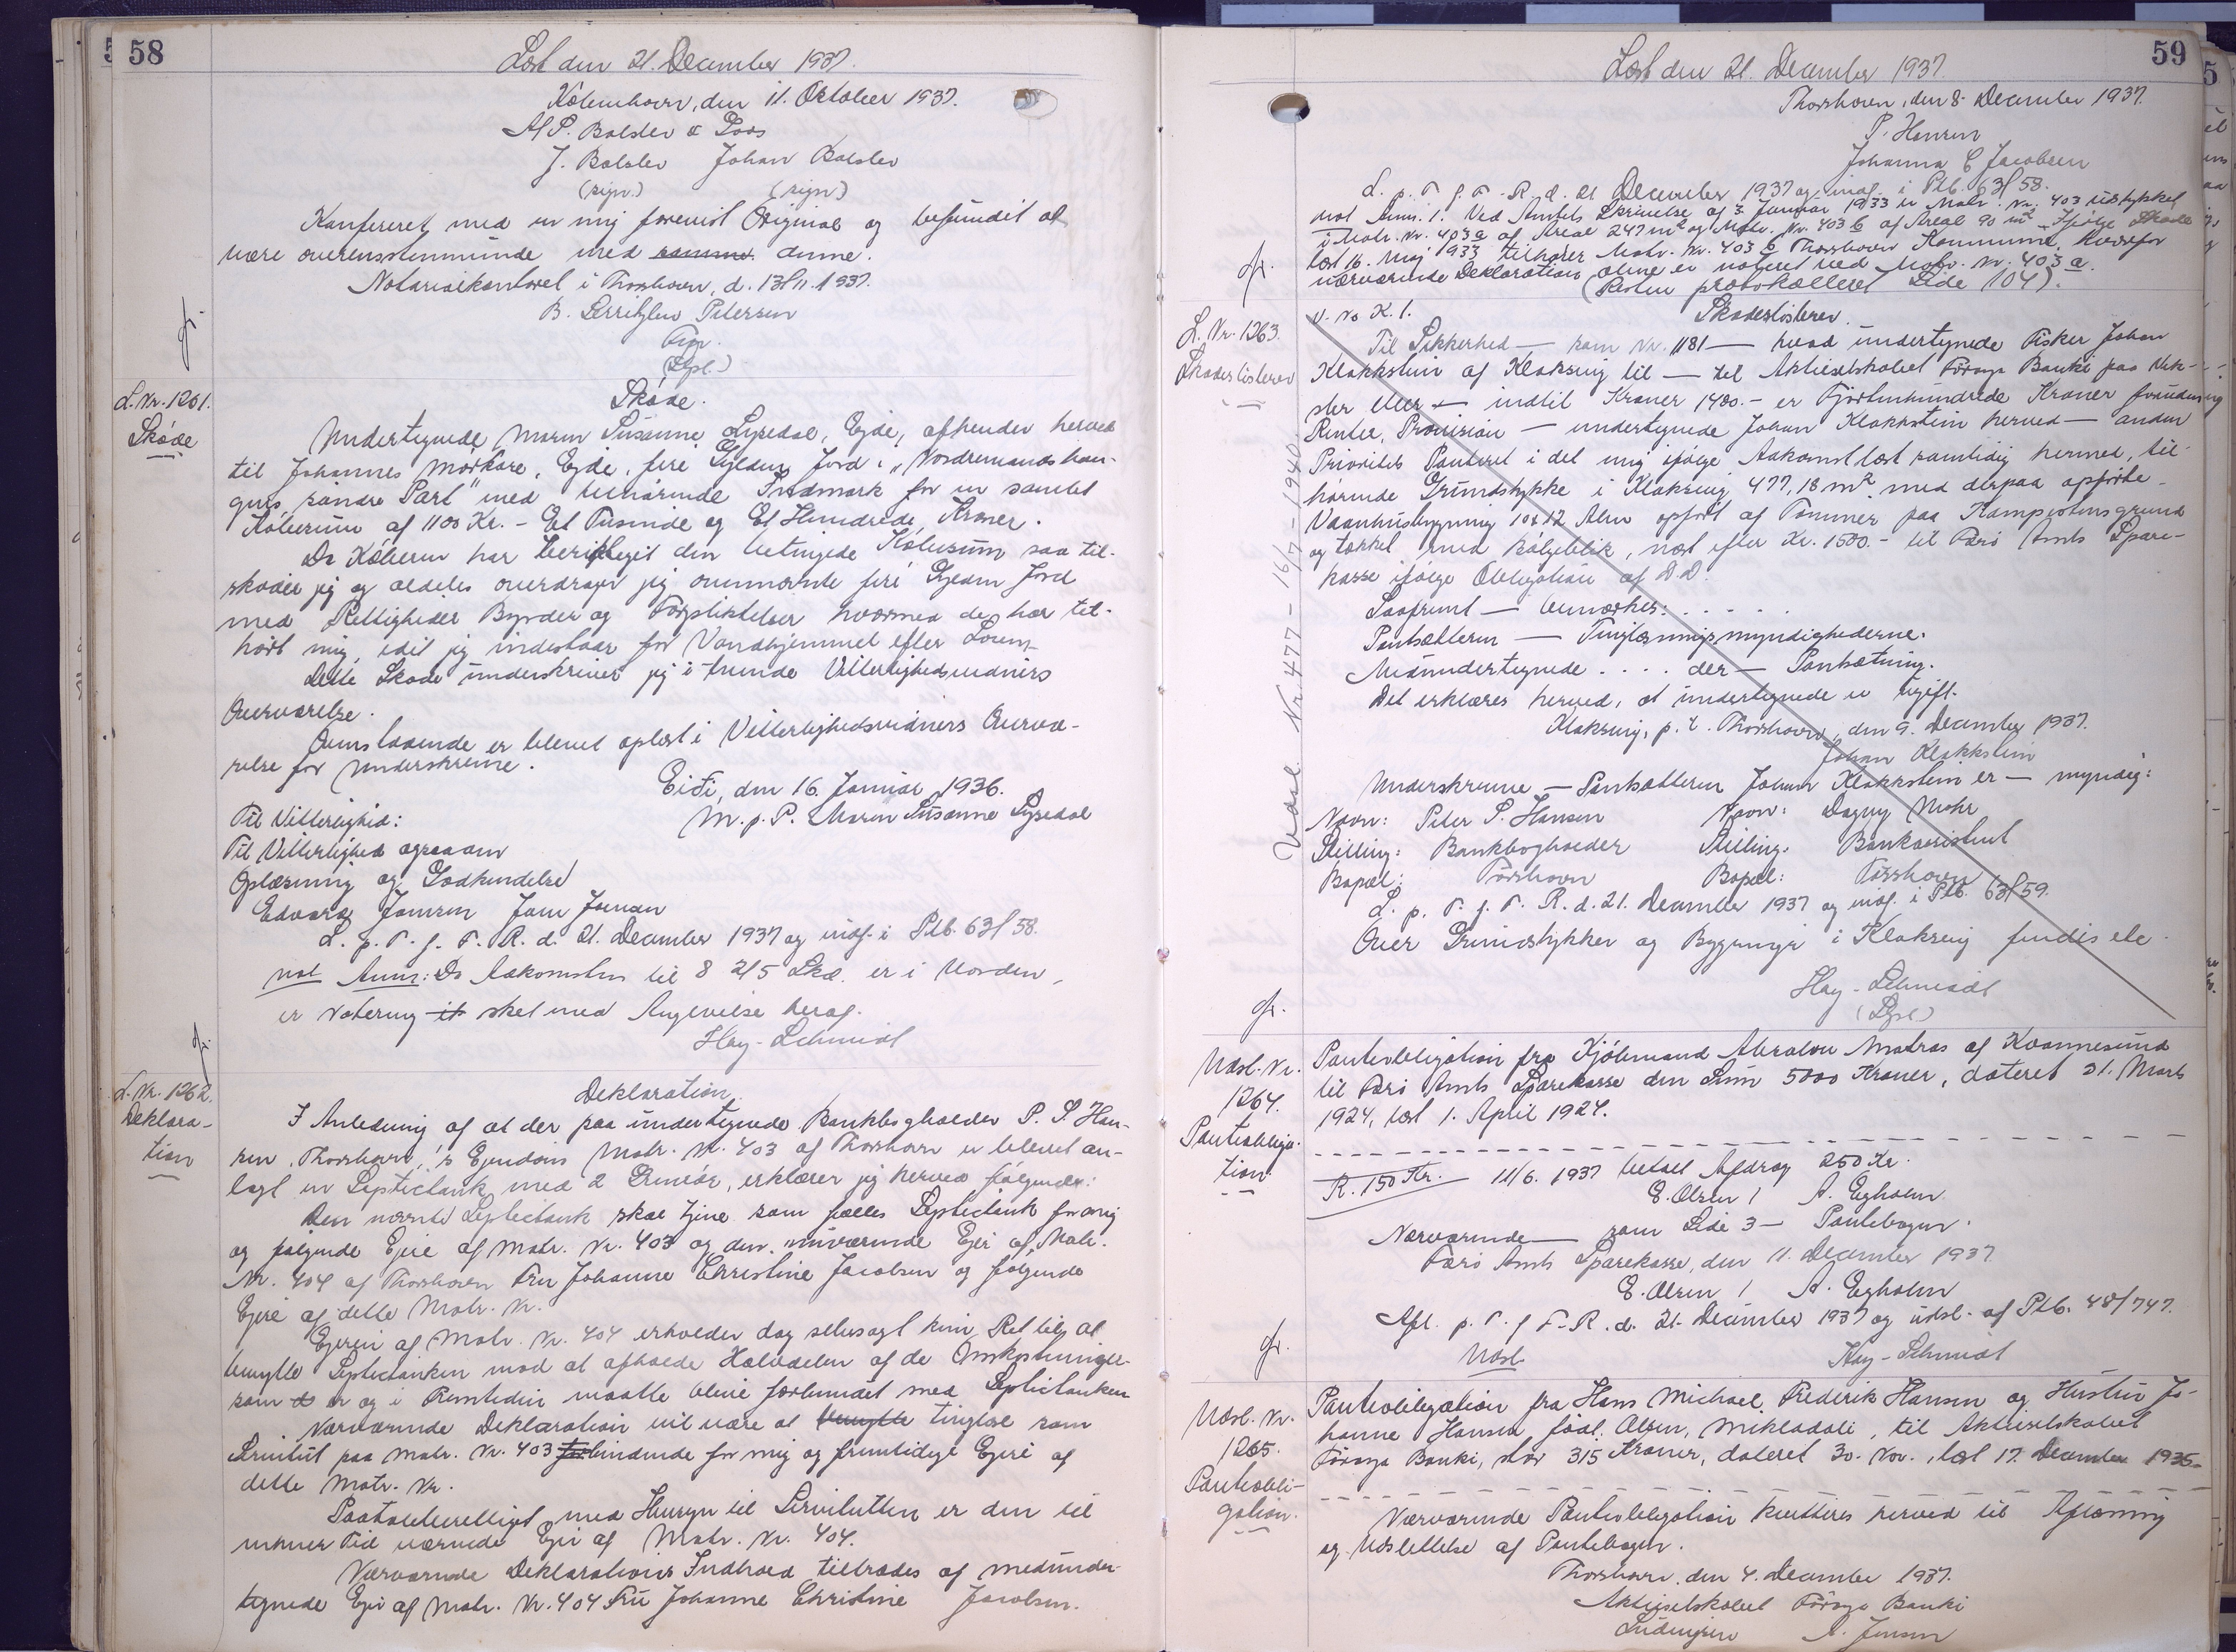 58
Læst den 21. December 1937.
København, den 11. Oktober 1937.
Af P. Bolslev & Loos
J. Bolslev Johan Bolslev
(sign.) (sign.)
Konfereret med en mig forevist Original og befundet at
være overensstemmende med samme denne.
Notarialkontoret i Thorshavn, d. 13/11.1937.
B. Gerritzlew Petersen
(Lgsl.)
gr.
L. Nr. 1261.
Skøde
Skøde.
Undertegnede Maren Susanne Lysedal, Ejde, afhender herved
til Johannes Mørkøre, Ejde, fire Gylden Jord i "Nordremands hou-
gus, søndre Part" med tilhørende Indmark for en samlet
Købesum af 1100 Kr. - Et Tusinde og Et Hundrede Kroner.
Da Køberen har berigtiget den betingede Købesum saa til-
skøder jeg og aldeles overdrager jeg ovennævnte fire Gylden Jord
med Rettigheder Byrder og Forpligtelser hvormed de har til-
hørt mig, idet jeg indestaar for Vanhjemmel efter Loven.
Dette Skøde underskriver jeg i tvende Vitterlighedsvidners
Overværelse.
Ovenstaaende er blevet oplæst i Vitterlighedsvidners Overvæ-
relse før Underskrivne.
Eiði, den 16. Januar 1936.
Til Vitterlighed: m. p. P. Maren Susanne Lysedal
Til Vitterlighed ogsaa om
Oplæsning og Godkendelse
Edvard Jensen Jens Jensen
L. p. T. f. F. R. d. 21. December 1937 og indf. i Ptb. 63/58.
not Anm: Da Adkomsten til 8 2/5 Skd. er i Uorden,
er Notering it sket med Angivelse heraf.
Hay-Schmidt
gr.
L. Nr. 1262.
Deklara-
tion
Deklaration.
I Anledning af at der paa undertegnede Bankbogholder P. S. Han-
sen, Thorshavn,'s Ejendom Matr. Nr. 403 af Thorshavn er blevet an-
lagt en Septictank med 2 Grundør, erklærer jeg herved følgende:
Den nævnte Septictank skal tjene som fælles Septictank for mig
og følgende Ejere af Matr. Nr. 403 og den nuværende Ejer af Matr.
Nr. 404 af Thorshavn Fru Johanne Christine Jacobsen og følgende
Ejere af dette Matr. Nr.
Ejeren af Matr. Nr. 404 erholder dog selvsagt kun Ret til at
benytte Septictanken mod at afholde Halvdelen af de Omkostninger
som er og i Fremtiden maatte blive forbundet med Septictanken
Nærværende Deklaration vil være at benytte tinglæse som
Servitut paa Matr. Nr. 403 forbindende for mig og fremtidige Ejere af
dette Matr. Nr.
Paataleberettiget med Hensyn til Servitutten er den til
enhver Tid værende Ejer af Matr. Nr. 404.
Nærværende Deklarations Indhold tiltrædes af medunder-
tegnede Ejer af Matr. Nr. 404 Fru Johanne Christine Jacobsen.
59
Læst den 21. December 1937.
Thorshavn, den 8. December 1937.
P. Hansen
Johanna C Jacobsen
L. p. T. f. F. R. d. 21 December 1937 og indf. i Ptb. 63/58.
not Anm. 1. Ved Amtets Skrivelse af 3 Januar 1933 er Matr. Nr. 403 udstykket
i Matr. Nr. 403 a af Areal 247 m2 og Matr. Nr. 403 b af Areal 90 m2. Ifølge Skøde
læst 16. Maj 1933 tilhører Matr. Nr. 403 b Thorshavn Kommune, hvorfor
nærværende Deklaration alene er noteret ved Matr. Nr. 403 a.
(Resten protokolleret Side 104).
gr.
L. Nr. 1263.
Skadesløsbrev
V. No K. 1.
Skadesløsbrev.
Til Sikkerhed — som Nr. 1181 — hvad undertegnede Fisker Johan
Klakkstein af Klaksvig til — til Aktieselskabet Føroya Banki paa Vek-
sler eller — indtil Kroner 1400.- er Fjortenhundrede Kroner foruden
Renter, Provision — undertegnede Johan Klakkstein herved — anden
Prioritets Panteret i det mig ifølge Adkomst læst samtidig hermed, til-
hørende Grundstykke i Klaksvig 477,18 m2. med derpaa opførte
Vaanhusbygning 10x12 Alen opført af Tømmer paa Kampestensgrund
og tækket med bølgeblik, næst efter Kr. 1500.- til Færø Amts Spare-
kasse ifølge Obligation af D.D.
Saafremt — bemærkes: . . . . .
Pantsætteren — Tinglæsningsmyndighederne.
Medundertegnede . . . . der — Pantsætning.
Det erklæres herved, at undertegnede er ugift.
Klaksvig, p. t. Thorshavn, den 9. December 1937.
Johan Klakkstein
Underskrivne — Pantsætteren Johan Klakkstein er — myndig:
Navn: Peter S. Hansen Navn: Dagny Mohr
Stilling: Bankbogholder Stilling: Bankassistent
Bopæl: Tórshavn Bopæl: Tórshavn
L. p. T. f. F. R. d. 21. December 1937 og indf. i Ptb. 63/59.
Over Grundstykker og Bygninger i Klaksvig findes ele-
Hay-Schmidt
(Lgsl.)
Udsl. Nr. 477 - 16/7 - 1940
gr.
Udsl. Nr.
1264.
Pantobliga-
tion
Pantobligation fra Kjøbmand Abraham Matras af Kvannesund
til Færø Amts Sparekasse den Sum 5000 Kroner, dateret 31. Marts
1924, læst 1. April 1924.
R. 150 Kr. 11/6. 1937 betalt Afdrag 250 Kr.
E. Olsen / A. Egholm
Nærværende — som Side 3 — Pantebogen.
Færø Amts Sparekasse, den 11. December 1937.
E. Olsen / A. Egholm
Afl. p. T. f F. R. d. 21. December 1937 og udsl. af Ptb. 48/747.
Udsl. Hay-Schmidt
gr.
Udsl. Nr.
1265.
Pantobli-
gation.
Pantobligation fra Hans Michael Frederik Hansen og Hustru Jo-
hanne Hansen født Olsen, Mikladali, til Aktieselskabet
Føroya Banki, stor 315 Kroner, dateret 30. Nov., læst 17. December 1935.
Nærværende Pantobligation kvitteres herved til Aflæsning
og Udslettelse af Pantebogen.
Thorshavn, den 4. December 1937.
Aktieselskabet Føroya Banki
A. Jensen